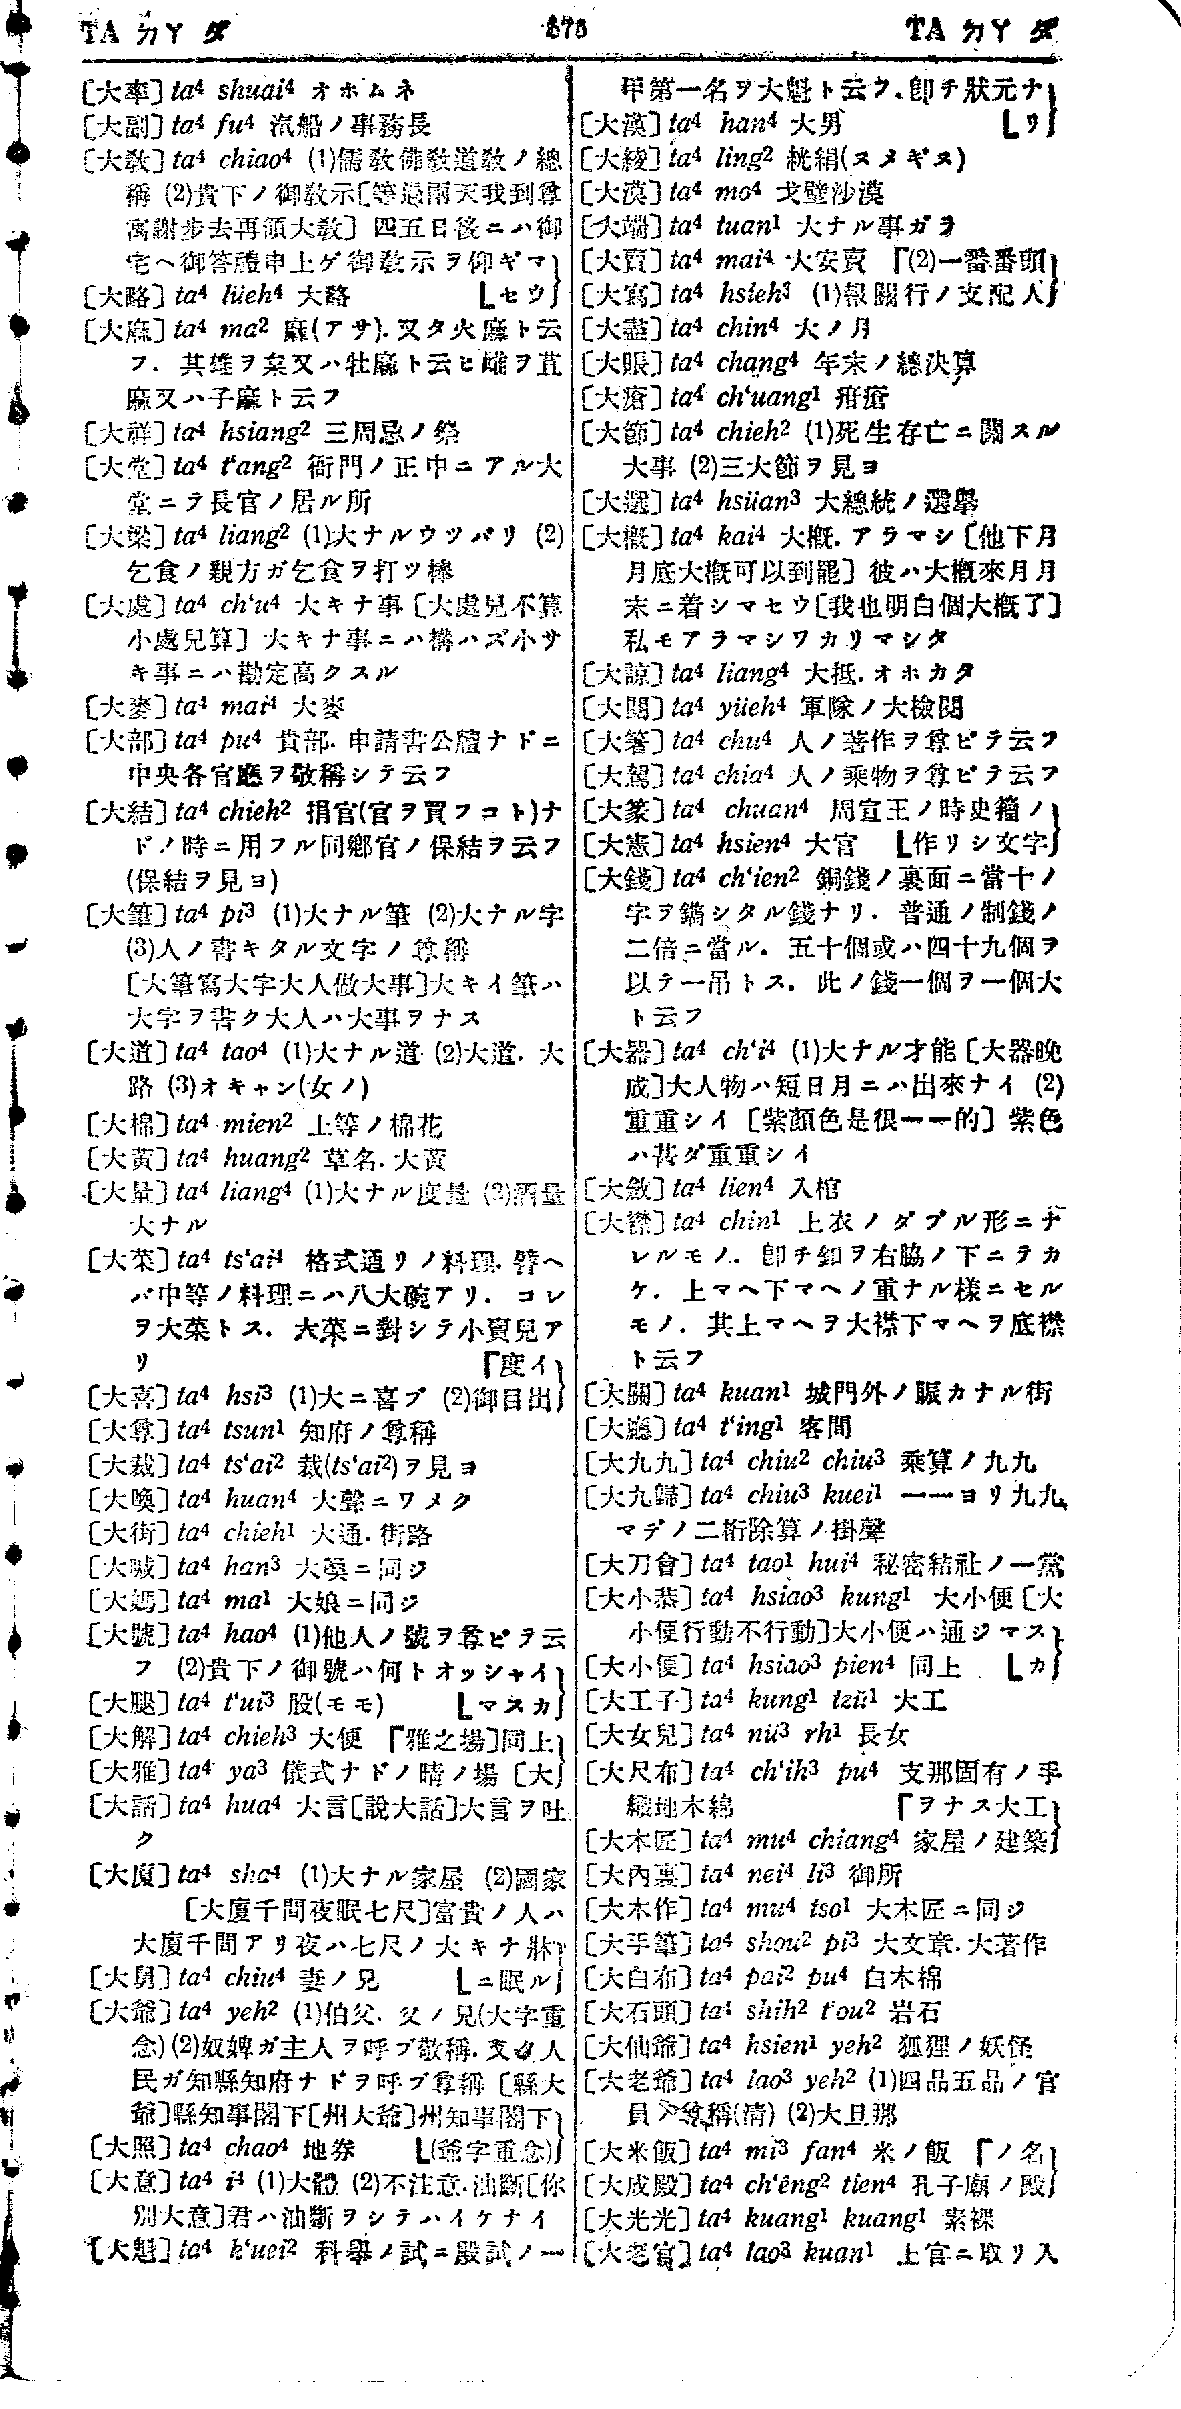 TA ㄉㄚ ダ
TA ㄉㄚ ダ
[大率] ta⁴ shuai⁴ オホムネ
[大副] ta⁴ fu⁴ 汽船ノ事務長
[大敎] ta⁴ chiao⁴ (1)儒敎佛敎道敎ノ總
稱 (2)貴下ノ御敎示[等過兩天我到尊
寓謝步去再領大敎] 四五日後ニハ御
宅ヘ御答禮申上ゲ御敎示ヲ仰ギマ
[大略] ta⁴ lüeh⁴ 大略 ⎣セウ⎦
[大麻] ta⁴ ma² 麻(アサ). 又タ火麻ト云
フ. 其雄ヲ枲又ハ牡麻ト云ヒ雌ヲ苴
麻又ハ子麻ト云フ
[大祥] ta⁴ hsiang² 三周忌ノ祭
[大堂] ta⁴ t'ang² 衙門ノ正中ニアル大
堂ニテ長官ノ居ル所
[大梁] ta⁴ liang² (1)大ナルウツバリ (2)
乞食ノ親方ガ乞食ヲ打ツ棒
[大處] ta⁴ ch'u⁴ 大キナ事 [大處兒不算
小處兒算] 大キナ事ニハ構ハズ小サ
キ事ニハ勘定高クスル
[大麥] ta⁴ mai⁴ 大麥
[大部] ta⁴ pu⁴ 貴部. 申請書公牘ナドニ
中央各官廳ヲ敬稱シテ云フ
[大結] ta⁴ chieh² 捐官(官ヲ買フコト)ナ
ドノ時ニ用フル同鄕官ノ保結ヲ云フ
(保結ヲ見ヨ)
[大筆] ta⁴ pi³ (1)大ナル筆 (2)大ナル字
(3)人ノ書キタル文字ノ尊稱
[大筆寫大字大人做大事]大キイ筆ハ
大字ヲ書ク大人ハ大事ヲナス
[大道] ta⁴ tao⁴ (1)大ナル道 (2)大道. 大
路 (3)オキャン(女ノ)
[大棉] ta⁴ mien² 上等ノ棉花
[大黃] ta⁴ huang² 草名. 大黃
[大量] ta⁴ liang⁴ (1)大ナル度量 (2)酒量
大ナル
[大菜] ta⁴ ts'ai⁴ 格式通リノ料理. 譬ヘ
バ中等ノ料理ニハ八大碗アリ. コレ
ヲ大菜トス. 大菜ニ對シテ小賣兒ア
リ ⎡度イ
[大喜] ta⁴ hsi³ (1)大ニ喜ブ (2)御目出⎦
[大尊] ta⁴ tsun¹ 知府ノ尊稱
[大裁] ta⁴ ts'ai² 裁(ts'ai²)ヲ見ヨ
[大喚] ta⁴ huan⁴ 大聲ニワメク
[大街] ta⁴ chieh¹ 大通. 街路
[大喊] ta⁴ han³ 大喚ニ同ジ
[大媽] ta⁴ ma¹ 大娘ニ同ジ
[大號] ta⁴ hao⁴ (1)他人ノ號ヲ尊ビテ云
フ (2)貴下ノ御號ハ何トオッシャイ
[大腿] ta⁴ t'ui³ 股(モモ) ⎣マスカ⎦
[大解] ta⁴ chieh³ 大便 ⎡雅之場]同上
[大雅] ta⁴ ya³ 儀式ナドノ晴ノ場 [大⎦
[大話] ta⁴ hua⁴ 大言[說大話]大言ヲ吐
ク
[大廈] ta⁴ sha⁴ (1)大ナル家屋 (2)國家
[大廈千間夜眠七尺]富貴ノ人ハ
大廈千間アリ夜ハ七尺ノ大キナ牀
[大舅] ta⁴ chiu⁴ 妻ノ兄 ⎣ニ眠ル⎦
[大爺] ta⁴ yeh² (1)伯父. 父ノ兄(大字重
念) (2)奴婢ガ主人ヲ呼ブ敬稱. 又タ人
民ガ知縣知府ナドヲ呼ブ尊稱 [縣大
爺]縣知事閣下[州大爺]州知事閣下
[大照] ta⁴ chao⁴ 地券 ⎣(爺字重念)⎦
[大意] ta⁴ i⁴ (1)大體 (2)不注意. 油斷[你
別大意]君ハ油斷ヲシテハイケナイ
[大魁] ta⁴ k'uei² 科擧ノ試ニ殿試ノ一
甲第一名ヲ大魁ト云フ. 卽チ狀元ナ
[大漢] ta⁴ han⁴ 大男 ⎣リ⎦
[大綾] ta⁴ ling² 絖絹(スヌギヌ)
[大漠] ta⁴ mo⁴ 戈壁沙漠
[大端] ta⁴ tuan¹ 大ナル事ガラ
[大賣] ta⁴ mai⁴ 大安賣 ⎡(2)一番番頭
[大寫] ta⁴ hsieh³ (1)報關行ノ支配人⎦
[大盡] ta⁴ chin⁴ 大ノ月
[大賬] ta⁴ chang⁴ 年末ノ總決算
[大瘡] ta⁴ ch'uang¹ 疳瘡
[大節] ta⁴ chieh² (1)死生存亡ニ關スル
大事 (2)三大節ヲ見ヨ
[大選] ta⁴ hsüan³ 大總統ノ選擧
[大槪] ta⁴ kai⁴ 大槪. アラマシ [他下月
月底大槪可以到罷] 彼ハ大槪來月月
末ニ着シマセウ[我也明白個大槪了]
私モアラマシワカリマシタ
[大諒] ta⁴ liang⁴ 大抵. オホカタ
[大閱] ta⁴ yüeh⁴ 軍隊ノ大檢閱
[大箸] ta⁴ chu⁴ 人ノ著作ヲ尊ビテ云フ
[大駕] ta⁴ chia⁴ 人ノ乘物ヲ尊ビテ云フ
[大篆] ta⁴ chuan⁴ 周宣王ノ時史籀ノ
[大憲] ta⁴ hsien⁴ 大官 ⎣作リシ文字⎦
[大錢] ta⁴ ch'ien² 銅錢ノ裏面ニ當十ノ
字ヲ鑄シタル錢ナリ. 普通ノ制錢ノ
二倍ニ當ル. 五十個或ハ四十九個ヲ
以テ一吊トス. 此ノ錢一個ヲ一個大
ト云フ
[大器] ta⁴ ch'i⁴ (1)大ナル才能 [大器晚
成]大人物ハ短日月ニハ出來ナイ (2)
重重シイ [紫顏色是很一一的] 紫色
ハ甚ダ重重シイ
[大斂] ta⁴ lien⁴ 入棺
[大襟] ta⁴ chin¹ 上衣ノダブル形ニナ
レルモノ. 卽チ釦ヲ右脇ノ下ニテカ
ケ. 上マヘ下マヘノ重ナル樣ニセル
モノ. 其上マヘヲ大襟下マヘヲ底襟
ト云フ
[大關] ta⁴ kuan¹ 城門外ノ賑カナル街
[大廳] ta⁴ t'ing¹ 客間
[大九九] ta⁴ chiu² chiu³ 乘算ノ九九
[大九歸] ta⁴ chiu³ kuei¹ 一一ヨリ九九
マデノ二桁除算ノ掛聲
[大刀會] ta⁴ tao¹ hui⁴ 秘密結社ノ一黨
[大小恭] ta⁴ hsiao³ kung¹ 大小便 [大
小便行動不行動]大小便ハ通ジマス
[大小便] ta⁴ hsiao³ pien⁴ 同上 ⎣カ⎦
[大工子] ta⁴ kung¹ tzŭ¹ 大工
[大女兒] ta⁴ nü³ rh¹ 長女
[大尺布] ta⁴ ch'ih³ pu⁴ 支那固有ノ手
織地木綿 ⎡ヲナス大工
[大木匠] ta⁴ mu⁴ chiang⁴ 家屋ノ建築⎦
[大內裏] ta⁴ nei⁴ li³ 御所
[大木作] ta⁴ mu⁴ tso¹ 大木匠ニ同ジ
[大手筆] ta⁴ shou² pi³ 大文章. 大著作
[大白布] ta⁴ pai² pu⁴ 白木棉
[大石頭] ta⁴ shih² t'ou² 岩石
[大仙爺] ta⁴ hsien¹ yeh² 狐狸ノ妖怪
[大老爺] ta⁴ lao³ yeh² (1)四品五品ノ官
員ノ尊稱(淸) (2)大旦那
[大米飯] ta⁴ mi³ fan⁴ 米ノ飯 ⎡ノ名
[大成殿] ta⁴ ch'êng² tien⁴ 孔子廟ノ殿⎦
[大光光] ta⁴ kuang¹ kuang¹ 素裸
[大老官] ta⁴ lao³ kuan¹ 上官ニ取リ入